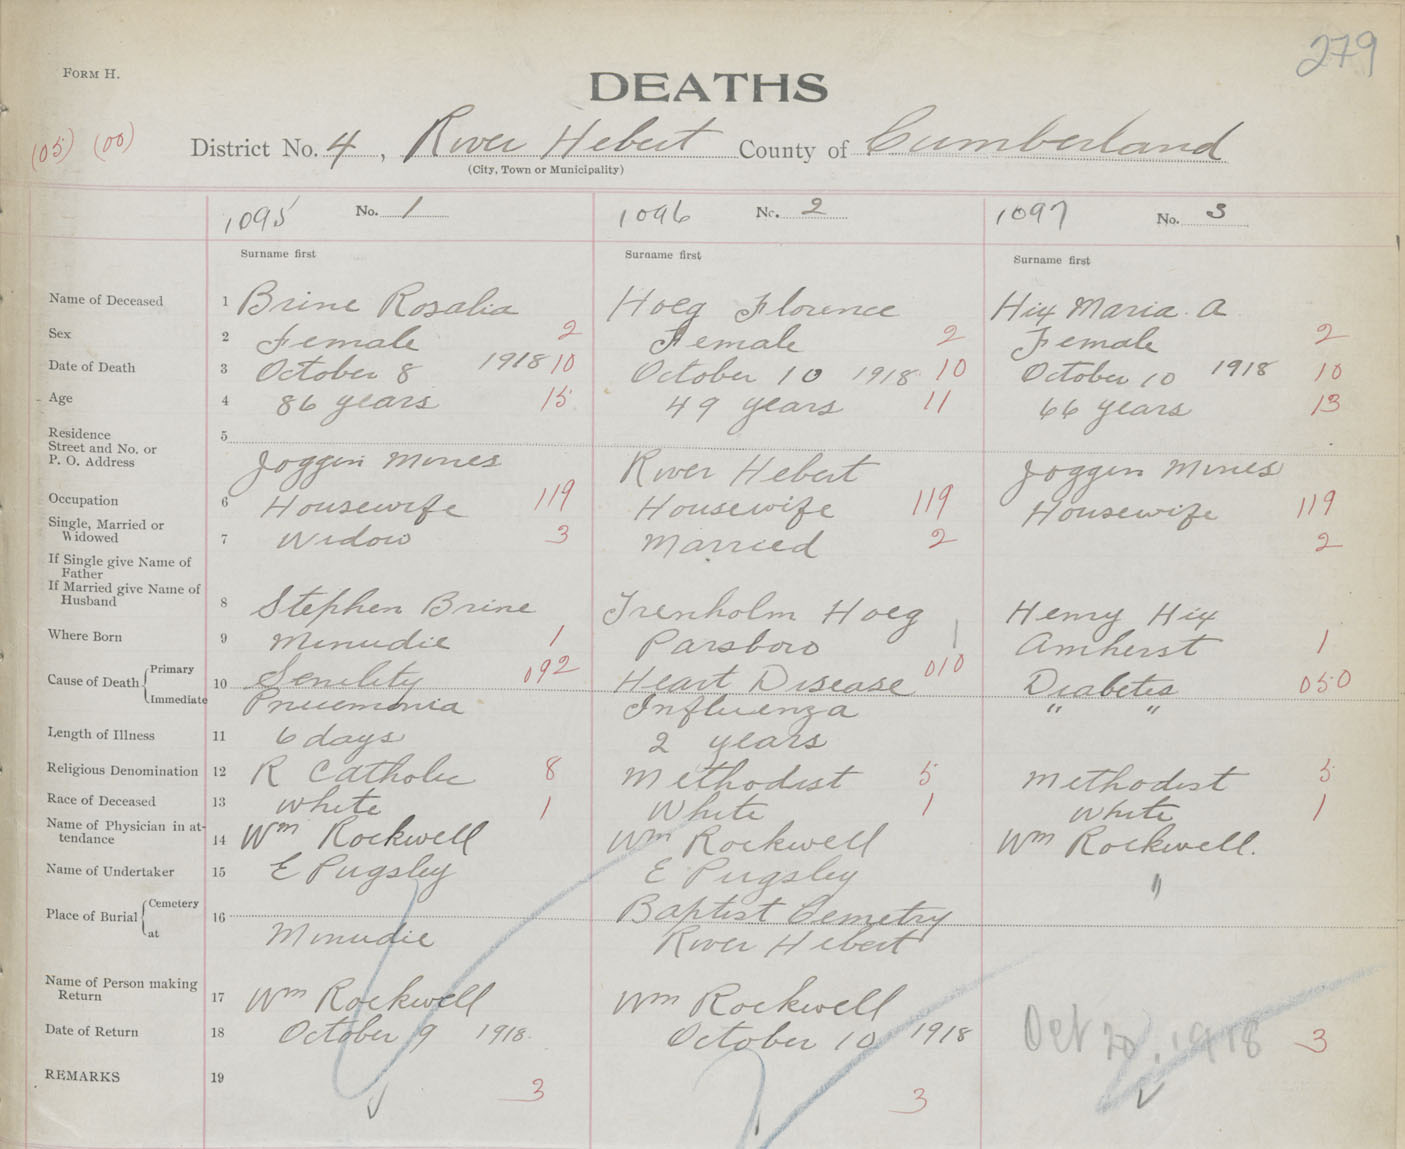 279
FORM H.
DEATHS
(05) (00) District No. 4, River Hebert County of Cumberland
(City, Town or Municipality)
1095 No. 1 1096 No. 2 1097 No. 3
Surname first Surname first Surname first
Name of Deceased 1 Brine Rosalia Hoeg Florence Hix Maria. A
Sex 2 Female 2 Female 2 Female 2
Date of Death 3 October 8 1918 10 October 10 1918 10 October 10 1918 10
Age 4 86 years 15 49 years 11 66 years 13
Residence
Street and No. or 5
P. O. Address Joggin Mines River Hebert Joggin Mines
Occupation 6 Housewife 119 Housewife 119 Housewife 119
Single, Married or
Widowed 7 Widow 3 Married 2 2
If Single give Name of
Father
If Married give Name of
Husband 8 Stephen Brine Trenholm Hoeg Henry Hix
Where Born 9 Minudie 1 Parsboro 1 Amherst 1
Cause of Death Primary 10 Senility 092 Heart Disease 010 Diabetes 050
Immediate Pnuemonia Influenza " "
Length of Illness 11 6 days 2 years
Religious Denomination 12 R Catholic 8 Methodist 5 Methodist 5
Race of Deceased 13 White 1 White 1 White 1
Name of Physician in at-
tendance 14 Wm Rockwell Wm Rockwell Wm Rockwell.
Name of Undertaker 15 E Pugsley E Pugsley "
Place of Burial Cemetery 16 Baptist Cemetry
at Minudie River Hebert
Name of Person making
Return 17 Wm Rockwell Wm Rockwell
Date of Return 18 October 9 1918. October 10 1918 Oct 20, 1918 3
REMARKS 19 3 3